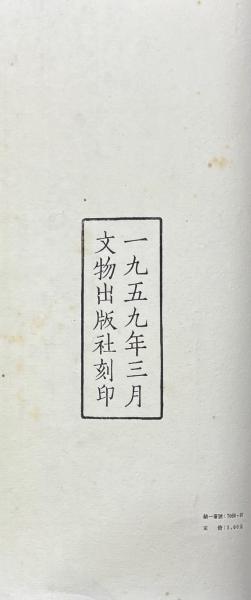 一九五九年三月
文物出版社刻印
統一書號：7068·
定 價：3.00元